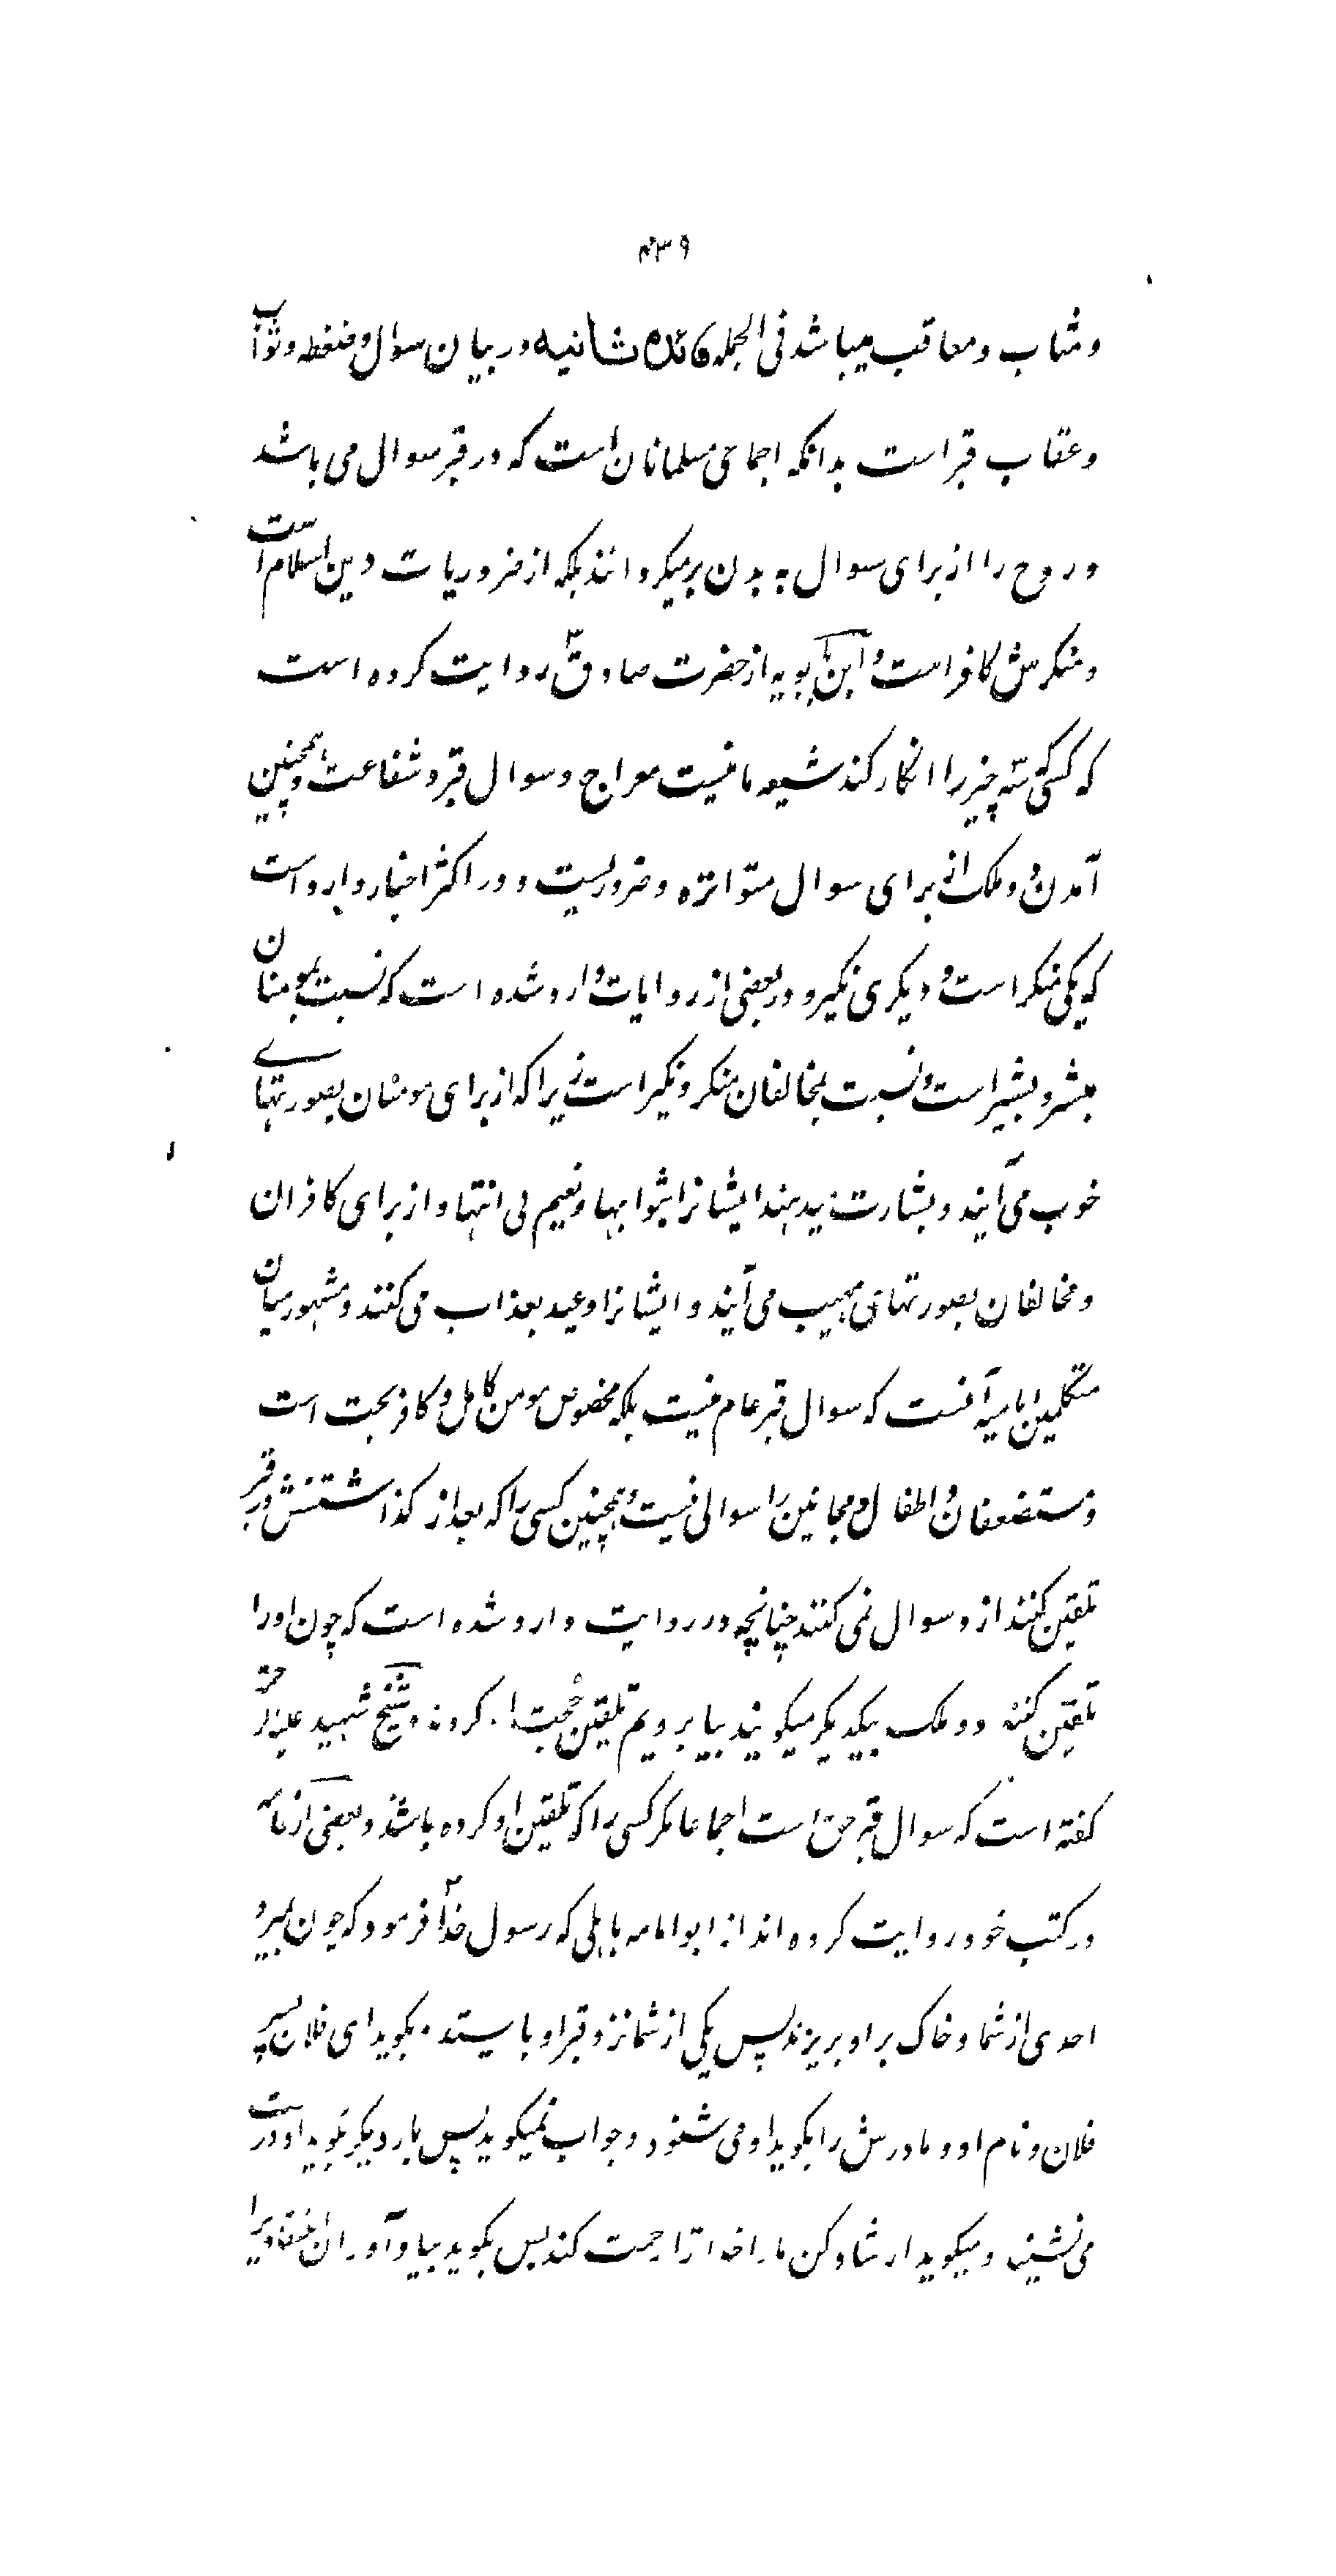 ۴۳۹
و مثاب و معاقب میباشد فی الجمله فائده ثانیه در بیان سوال و ضغطه و ثواب
و عقاب قبر است بدانکه اجماعی مسلمانان است که در قبر سوال می باشد
و روح را از برای سوال به بدن برمیکردانند بلکه از ضروریات دین اسلام است
و منکرش کافر است و ابن بابویه از حضرت صادقؑ روایت کرده است
که کسی که سه چیز را انکار کند شیعه ما نیست معراج و سوال قبر و شفاعت و همچنین
آمدن دو ملک از برای سوال متواتره و ضروریست و در اکثر اخبار وارد است
که یکی منکر است و دیکری نکیر و در بعضی از روایات وارد شده است که نسبت بمومنان
مبشر و بشیر است و نسبت بمخالفان منکر و نکیر است زیرا که از برای مومنان بصورتهای
خوب می آیند و بشارت میدهند ایشانرا بثوابها و نعیم بی انتها و از برای کافران
و مخالفان بصورتهای مهیب می آیند و ایشانرا وعید بعذاب می کنند و مشهور میان
متکلمین امامیه آنست که سوال قبر عام نیست بلکه مخصوص مومن کامل و کافر بحت است
و مستضعفان و اطفال و مجانین را سوالی نیست و همچنین کسی را که بعد از کذاشتنش در قبر
تلقین کنند از و سوال نمی کنند چنانچه در روایت وارد شده است که چون اورا
تلقین کنند دو ملک بیکدیکر میکویند بیا برویم تلقین حجت او کردند و شیخ شهید علیه الرحمة
کفته است که سوال قبر حق است اجماعا مکر کسی را که تلقین او کرده باشند و بعضی از عامه
در کتب خود روایت کرده اند از ابو امامه باهلی که رسول خداؐ فرمود که چون بمیرد
احدی از شما و خاک بر او بریزند پس یکی از شما نزد قبر او بایستد و بکوید ای فلان پسر
فلان و نام او و مادرش را بکوید او می شنود و جواب نمیکوید پس بار دیکر بکوید او درست
می نشیند و میکوید ارشاد کن مارا خدا ترا رحمت کند پس بکوید بیاد آور ان اعتقادیرا